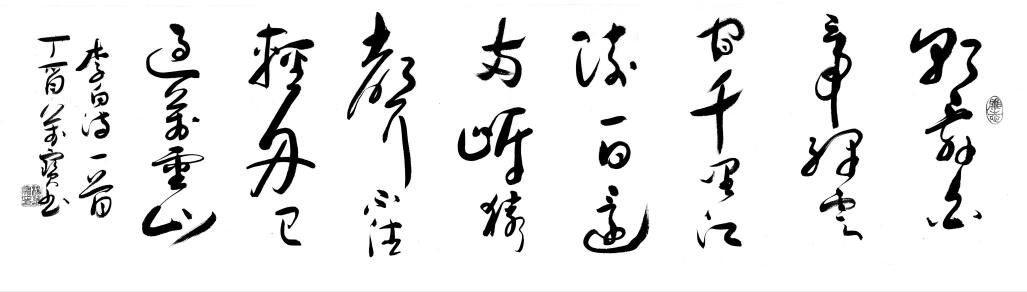 朝辭白
帝綵雲
間千里江
陵一日還
兩岸猿
聲啼不住
輕舟已
過萬重山
李白詩一首
丁酉萬寶書